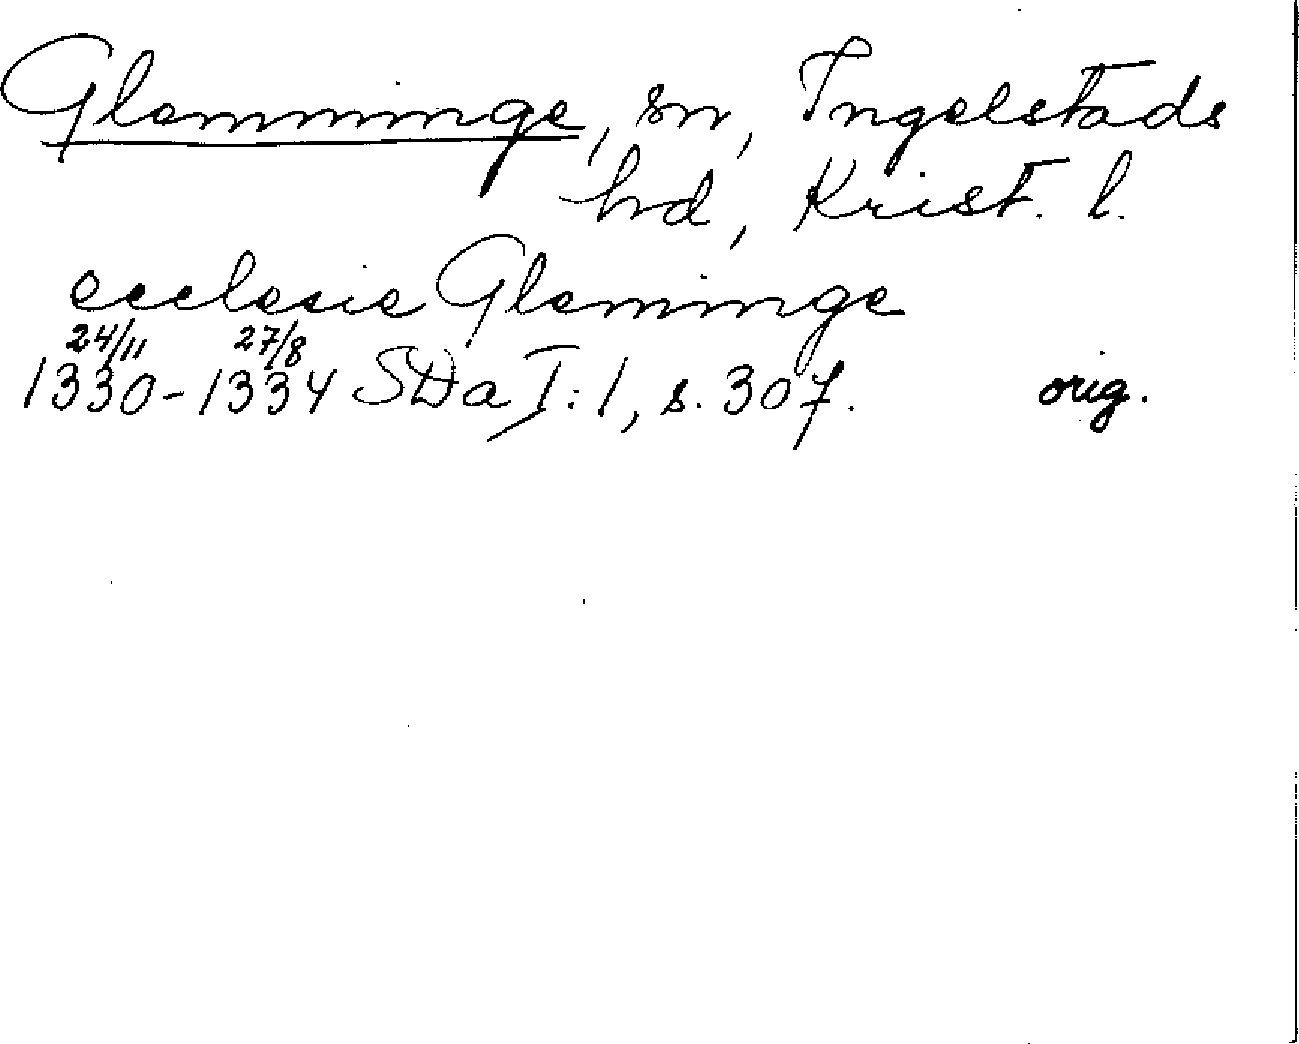 Glemminge, sn, Ingelstads
hd, Krist. l.
ecclesie Gleminge
24/11 27/8
1330-1334 SDa I:1, s. 307. orig.